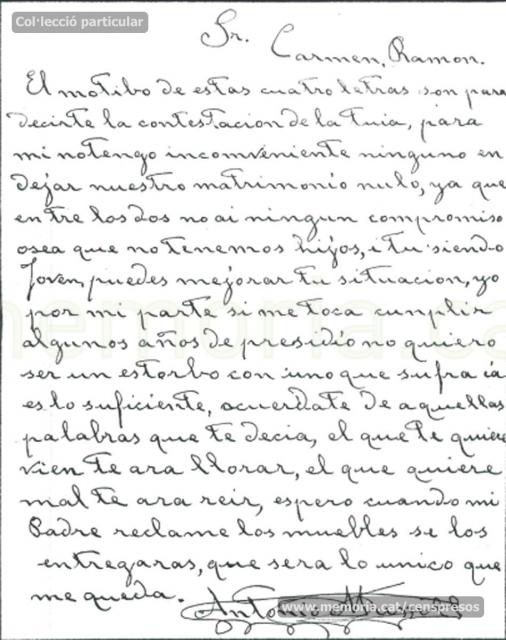 Col·lecció particular
Sr.
Carmen, Ramon.
El motibo de estas cuatro letras son para
decirte la contestacion de la tuia, para
mi no tengo incomveniente ninguno en
dejar nuestro matrimonio nulo, ya que
entre los dos no ai ningun compromiso
osea que no tenemos hijos, i tu siendo
Joven, puedes mejorar tu situacion, yo
por mi parte si me toca cumplir
algunos años de presidio no quiero
ser un estorbo con uno que sufra ia
es lo suficiente, acuerdate de aquellas
palabras que te decia, el que te quiere
vien te ara llorar, el que quiere
mal te ara reir, espero cuando mi
Padre reclame los muebles se los
entregaras, que sera lo unico que
me queda.
Antonio
www.memoria.cat/censpresos
memoria.cat